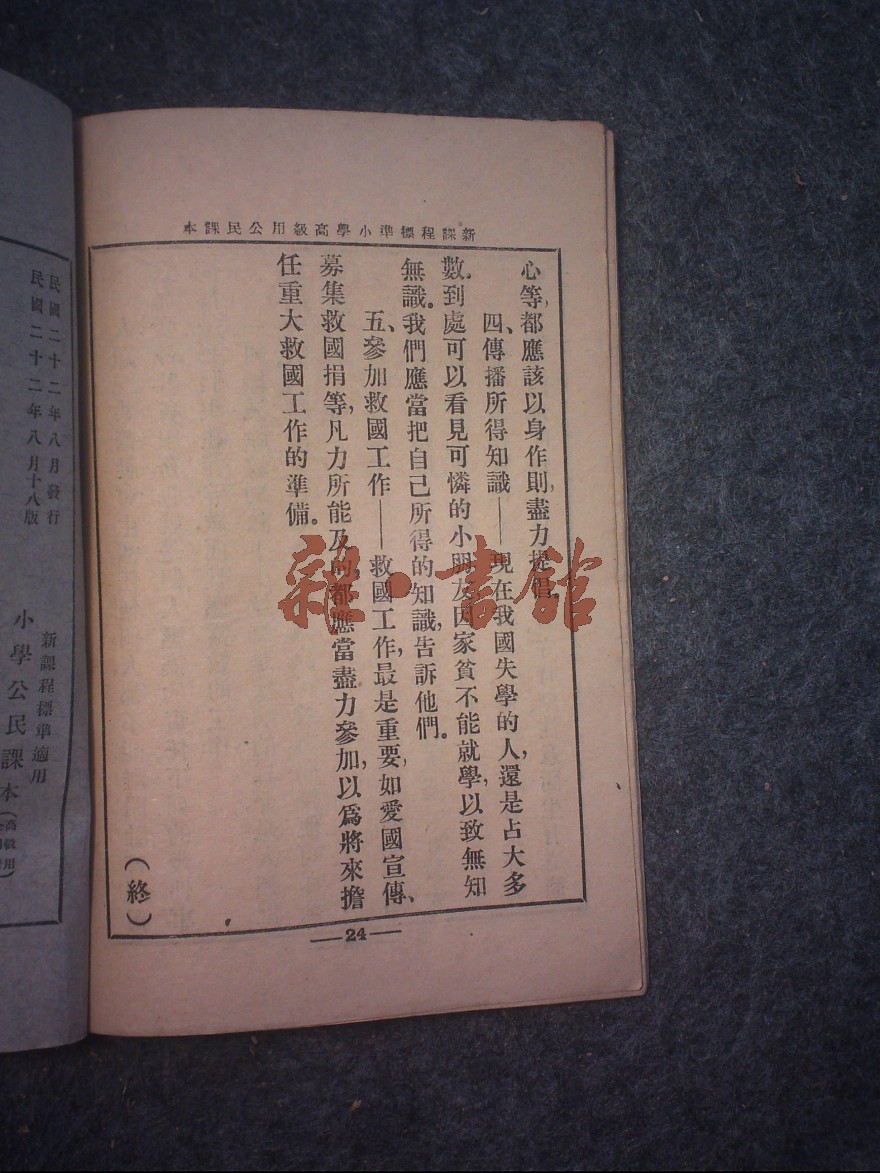 新課程標準小學高級用公民課本
心等,都應該以身作則,盡力提倡。
四、傳播所得知識——現在我國失學的人,還是占大多
數。到處可以看見可憐的小朋友因家貧不能就學,以致無知
無識。我們應當把自己所得的知識,告訴他們。
五、參加救國工作——救國工作,最是重要,如愛國宣傳、
募集救國捐等,凡力所能及的,都應當盡力參加,以爲將來擔
任重大救國工作的準備。
(終)
—24—
新課程標準適用
小學公民課本(高級用
民國二十二年八月發行
民國二十二年八月十八版
雜·書館